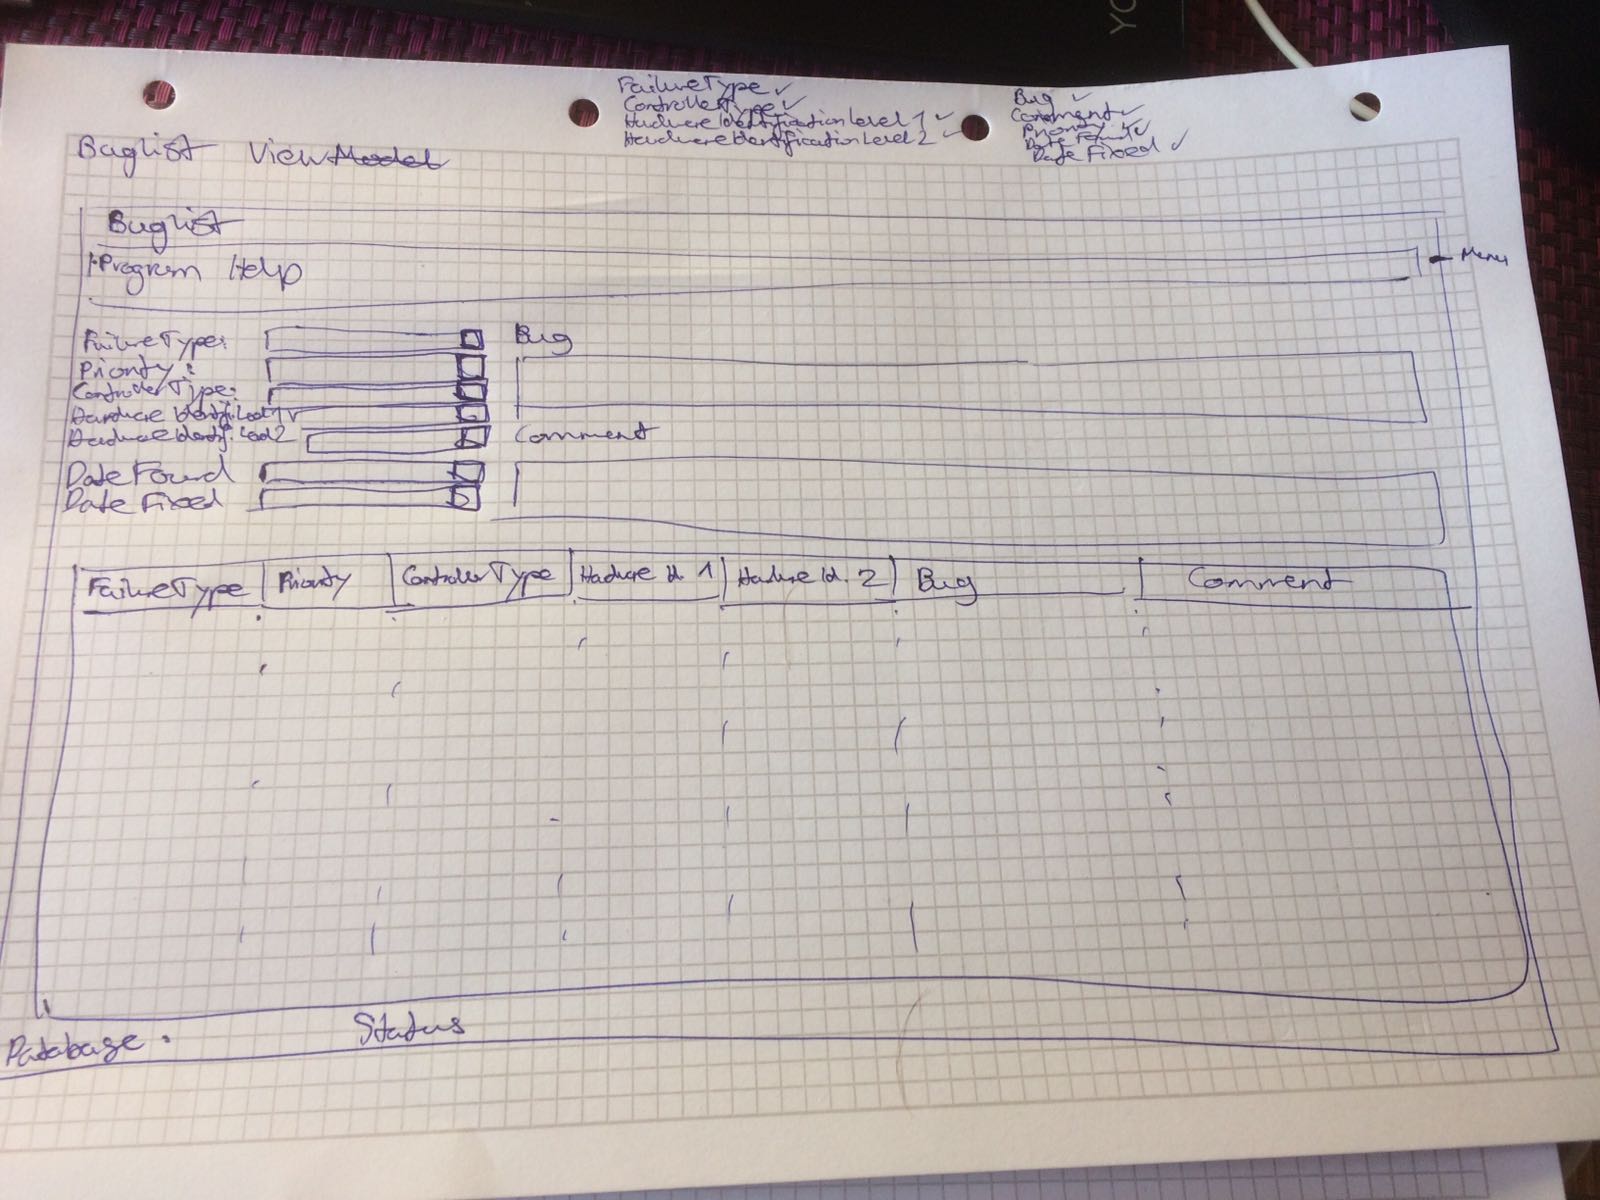 YO
FailureType ✓
ControllerType ✓
Hardware Identification Level 1 ✓
Hardware Identification Level 2 ✓
Bug ✓
Comment ✓
Priority ✓
Date Found ✓
Date Fixed ✓
Buglist ViewModel
Buglist
Program Help
Menu
FailureType:
Priority:
ControllerType:
Hardware Identif. Level 1
Hardware Identif. Level 2
Date Found
Date Fixed
Bug
Comment
FailureType Priority ControllerType Hardware Id. 1 Hardware Id. 2 Bug Comment
Database: Status